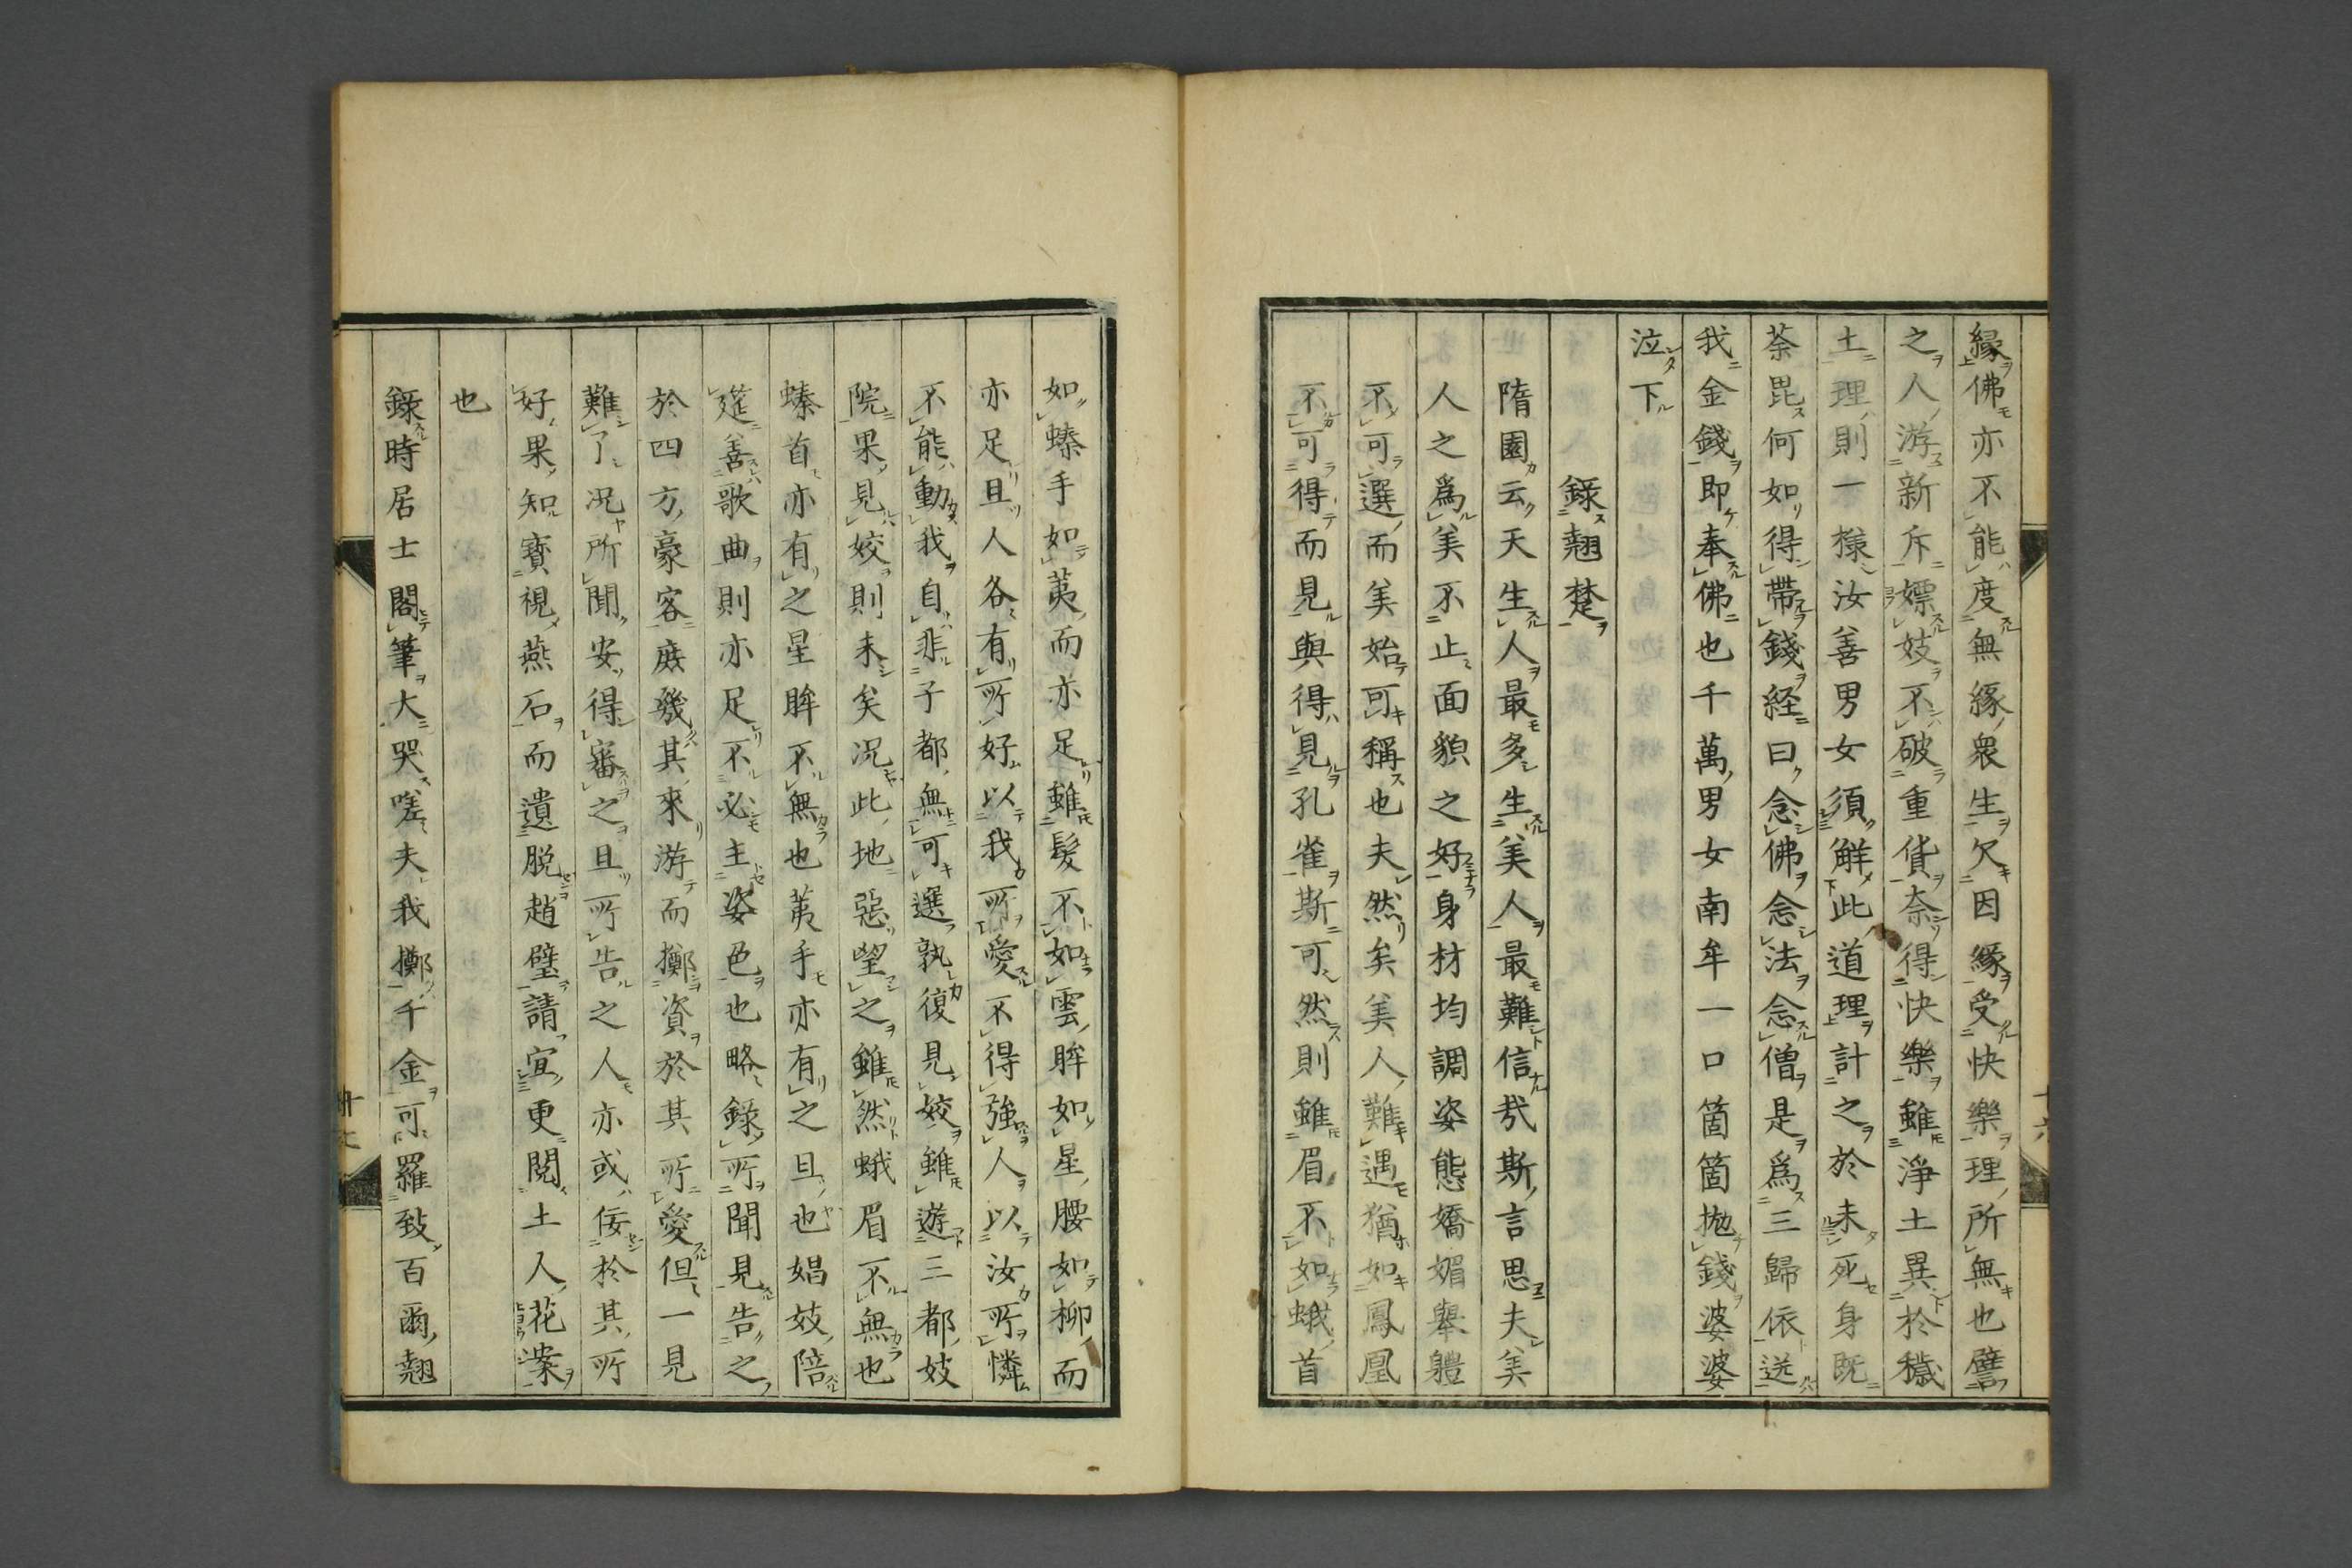 縁佛亦不能度無緣衆生欠因縁受快樂理所無也譬
之人游新斥嫖妓不破重貨奈得快樂雖淨土異於穢
土理則一樣汝善男女須解此道理計之於未死身既
荼毘何如得帶錢経曰念佛念法念僧是爲三歸依送
我金錢即奉佛也千萬男女南牟一口箇箇拋錢婆婆
泣下
錄翹楚
隋園云天生人最多生美人最難信哉斯言思夫美
人之爲美不止面貌之好身材均調姿態嬌媚舉體
不可選而美始可稱也夫然矣美人難遇猶如鳳凰
不可得而見與得見孔雀斯可然則雖眉不如蛾首
如螓手如荑而亦足雖髮不如雲眸如星腰如柳而
亦足且人各有所好以我所愛不得強人以汝所憐
不能動我自非子都無可選孰復見姣雖遊三都妓
院果見姣則未矣況此地惡望之雖然蛾眉不無也
螓首亦有之星眸不無也荑手亦有之且也娼妓陪
筵善歌曲則亦足不必主姿色也略錄所聞見告之
於四方豪客庶幾其來游而擲資於其所愛但一見
難了況所聞安得審之且所告之人亦或佞於其所
好果知寶視燕石而遺脱趙璧請宜更閲土人花案
也
錄時居士閣筆大哭嗟夫我擲千金可羅致百爾翹
十六